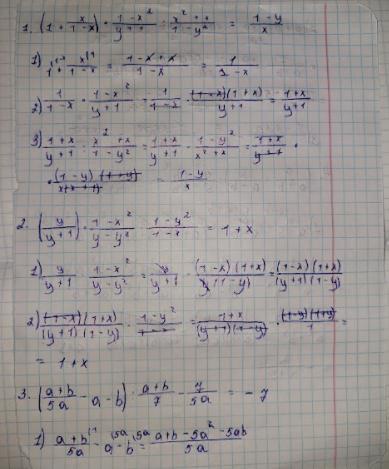 1. (1 + x/(1-x)) · (1-x²)/(y+1) : (x²+x)/(1-y²) = (1-y)/x
1) 1 + x/(1-x) = (1-x+x)/(1-x) = 1/(1-x)
2) 1/(1-x) · (1-x²)/(y+1) = 1/(1-x) · (1-x)(1+x)/(y+1) = (1+x)/(y+1)
3) (1+x)/(y+1) : (x²+x)/(1-y²) = (1+x)/(y+1) · (1-y²)/(x²+x) = (1+x)/(y+1) ·
· (1-y)(1+y)/(x(x+1)) = (1-y)/x
2. (y/(y+1)) · (1-x²)/(y-y²) · (1-y²)/(1-x) = 1+x
1) y/(y+1) · (1-x²)/(y-y²) = y/(y+1) · (1-x)(1+x)/(y(1-y)) = (1-x)(1+x)/((y+1)(1-y))
2) (1-x)(1+x)/((y+1)(1-y)) · (1-y²)/(1-x) = (1+x)/((y+1)(1-y)) · (1-y)(1+y)/1 =
= 1+x
3. ((a+b)/5a - a - b) · (a+b)/7 - 7/5a = -7
1) (a+b)/5a - a - b = (a+b-5a²-5ab)/5a